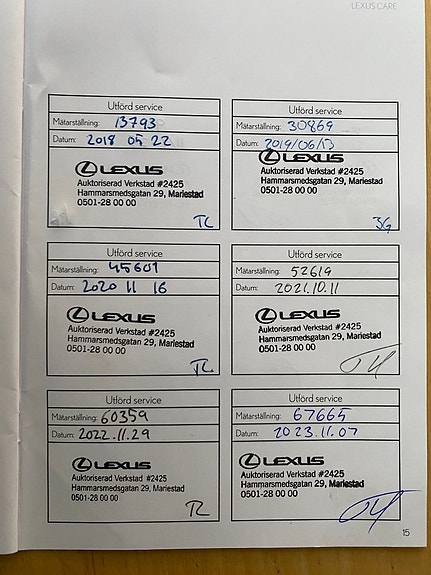 LEXUS CARE
Utförd service
Mätarställning: 13793
Datum: 2018 05 22
LEXUS
Auktoriserad Verkstad #2425
Hammarsmedsgatan 29, Mariestad
0501-28 00 00
TL
Utförd service
Mätarställning: 30869
Datum: 2019/06/13
LEXUS
Auktoriserad Verkstad #2425
Hammarsmedsgatan 29, Mariestad
0501-28 00 00
JG
Utförd service
Mätarställning: 45601
Datum: 2020 11 16
LEXUS
Auktoriserad Verkstad #2425
Hammarsmedsgatan 29, Mariestad
0501-28 00 00
TL
Utförd service
Mätarställning: 52619
Datum: 2021.10.11
LEXUS
Auktoriserad Verkstad #2425
Hammarsmedsgatan 29, Mariestad
0501-28 00 00
Utförd service
Mätarställning: 60359
Datum: 2022.11.29
LEXUS
Auktoriserad Verkstad #2425
Hammarsmedsgatan 29, Mariestad
0501-28 00 00
TL
Utförd service
Mätarställning: 67665
Datum: 2023.11.07
LEXUS
Auktoriserad Verkstad #2425
Hammarsmedsgatan 29, Mariestad
0501-28 00 00
15